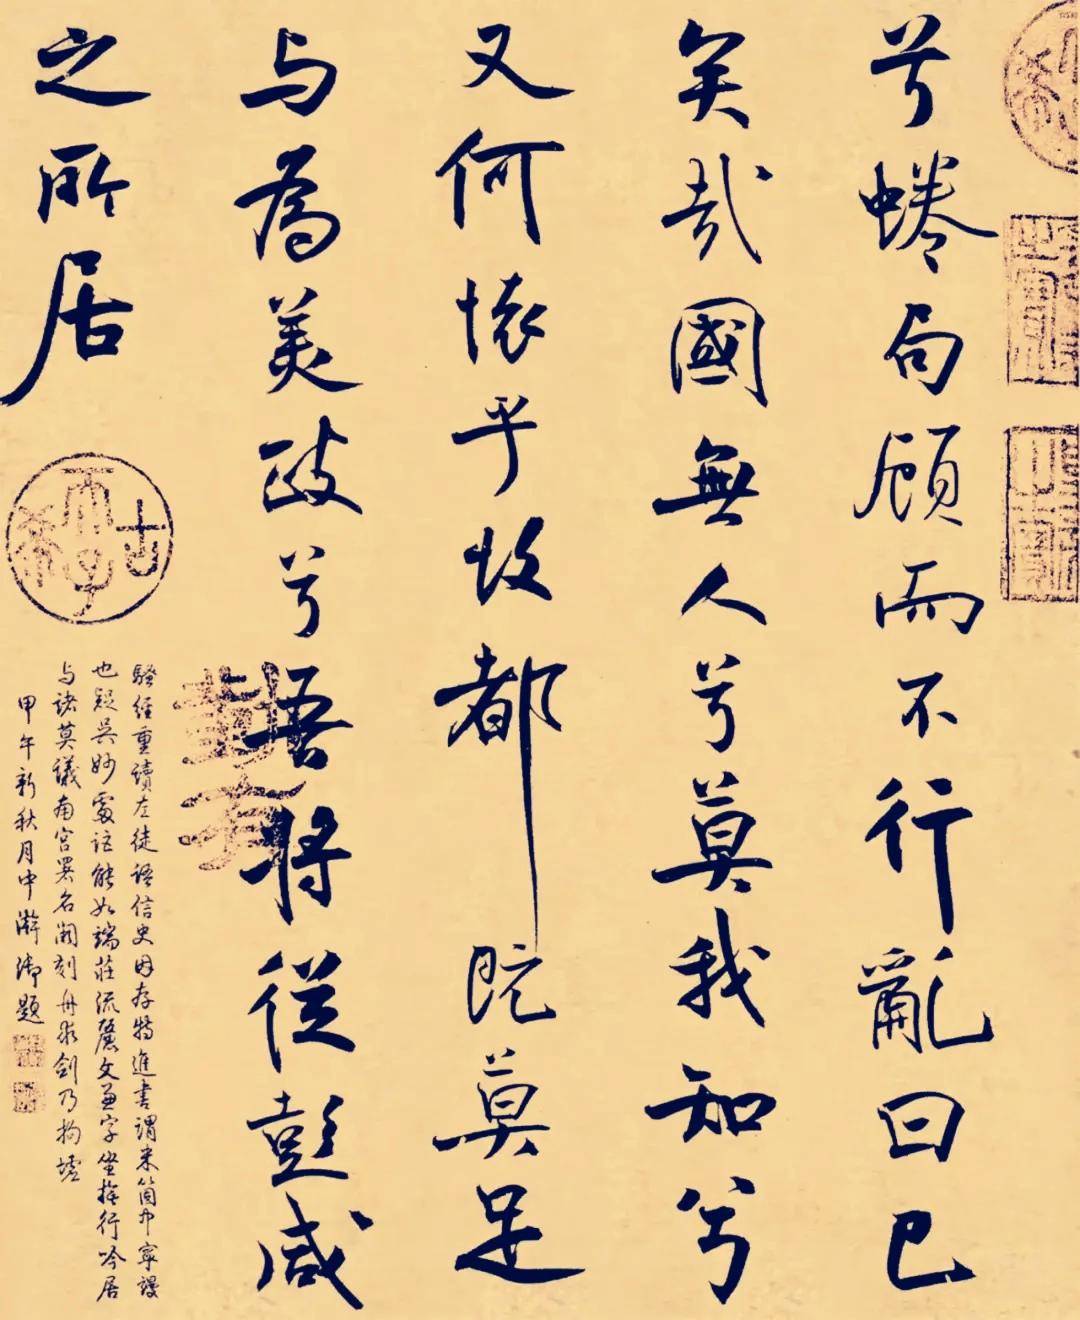 兮蜷句顧而不行亂曰已
矣哉國無人兮莫我知兮
又何懷乎故都既莫足
与為美政兮吾將從彭咸
之所居
騷經重讀左徒語信史因存特進書謂米箇中寧謾
也疑吳妙處詎能如端莊流麗文兼字坐撫行吟居
与諸莫議南宮署名闕刻舟求劍乃拘墟
甲午新秋月中澣御題
古希天子